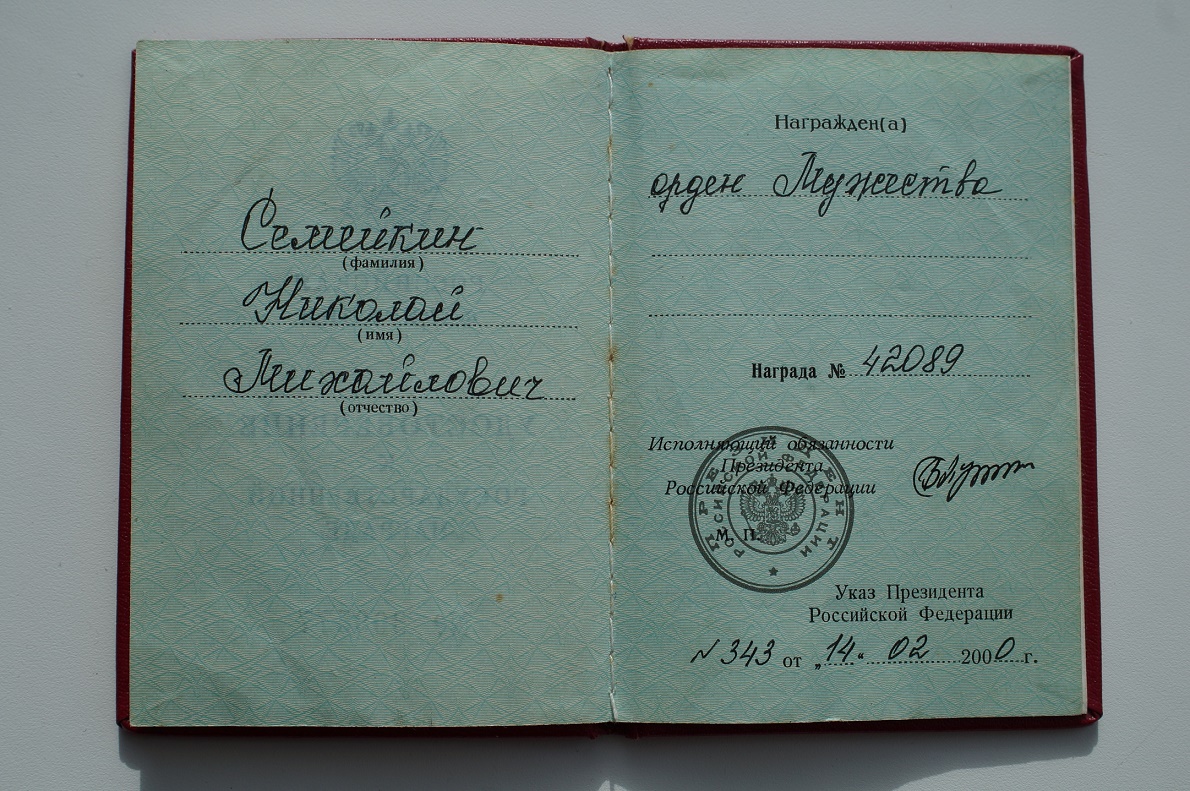 Семейкин
(фамилия)
Николай
(имя)
Михайлович
(отчество)
Награжден(а)
орден Мужества
Награда № 42089
Исполняющий обязанности
Президента
Российской Федерации
М. П.
ПРЕЗИДЕНТ
РОССИЙСКОЙ ФЕДЕРАЦИИ
Указ Президента
Российской Федерации
N 343 от „14“ 02 2000 г.